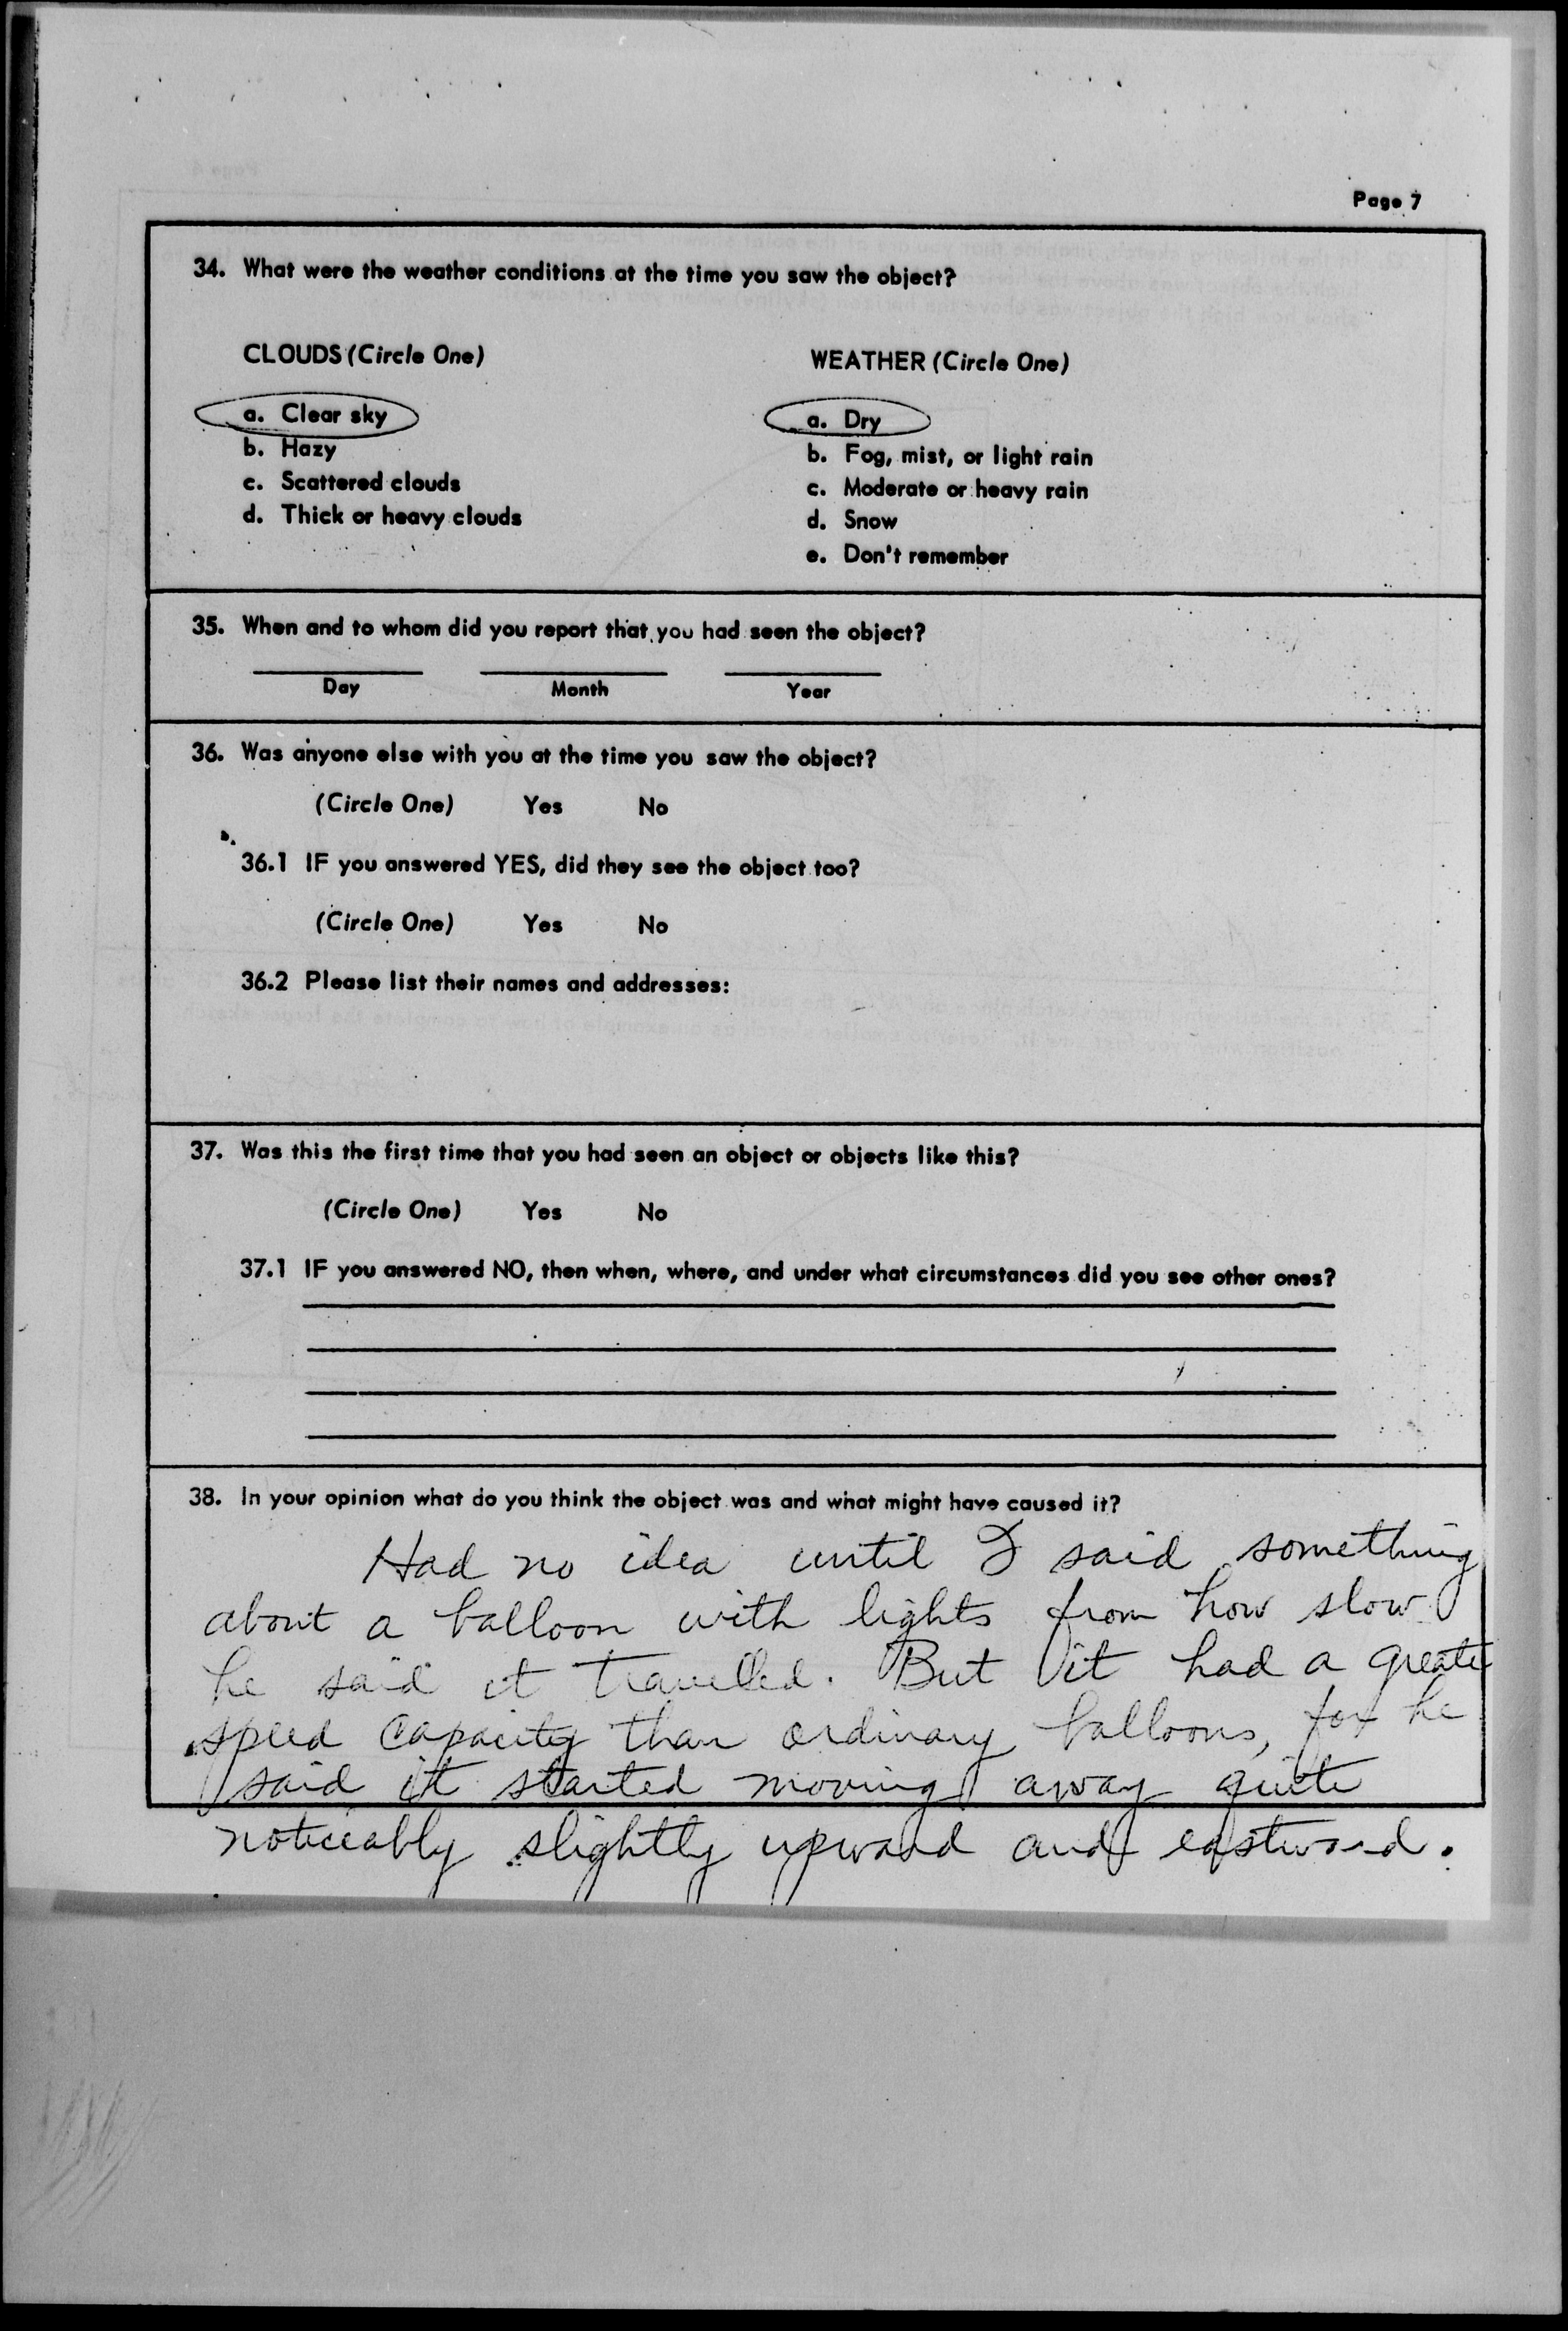 Page 7
34. What were the weather conditions at the time you saw the object?
CLOUDS (Circle One)
WEATHER (Circle One)
a. Clear sky
b. Hazy
c. Scattered clouds
d. Thick or heavy clouds
a. Dry
b. Fog, mist, or light rain
c. Moderate or heavy rain
d. Snow
e. Don't remember
35. When and to whom did you report that you had seen the object?
Day Month Year
36. Was anyone else with you at the time you saw the object?
(Circle One) Yes No
36.1 IF you answered YES, did they see the object too?
(Circle One) Yes No
36.2 Please list their names and addresses:
37. Was this the first time that you had seen an object or objects like this?
(Circle One) Yes No
37.1 IF you answered NO, then when, where, and under what circumstances did you see other ones?
38. In your opinion what do you think the object was and what might have caused it?
Had no idea until I said something
about a balloon with lights from how slow
he said it travelled. But it had a greater
speed capacity than ordinary balloons, for he
said it started moving away quite
noticeably slightly upward and eastward.